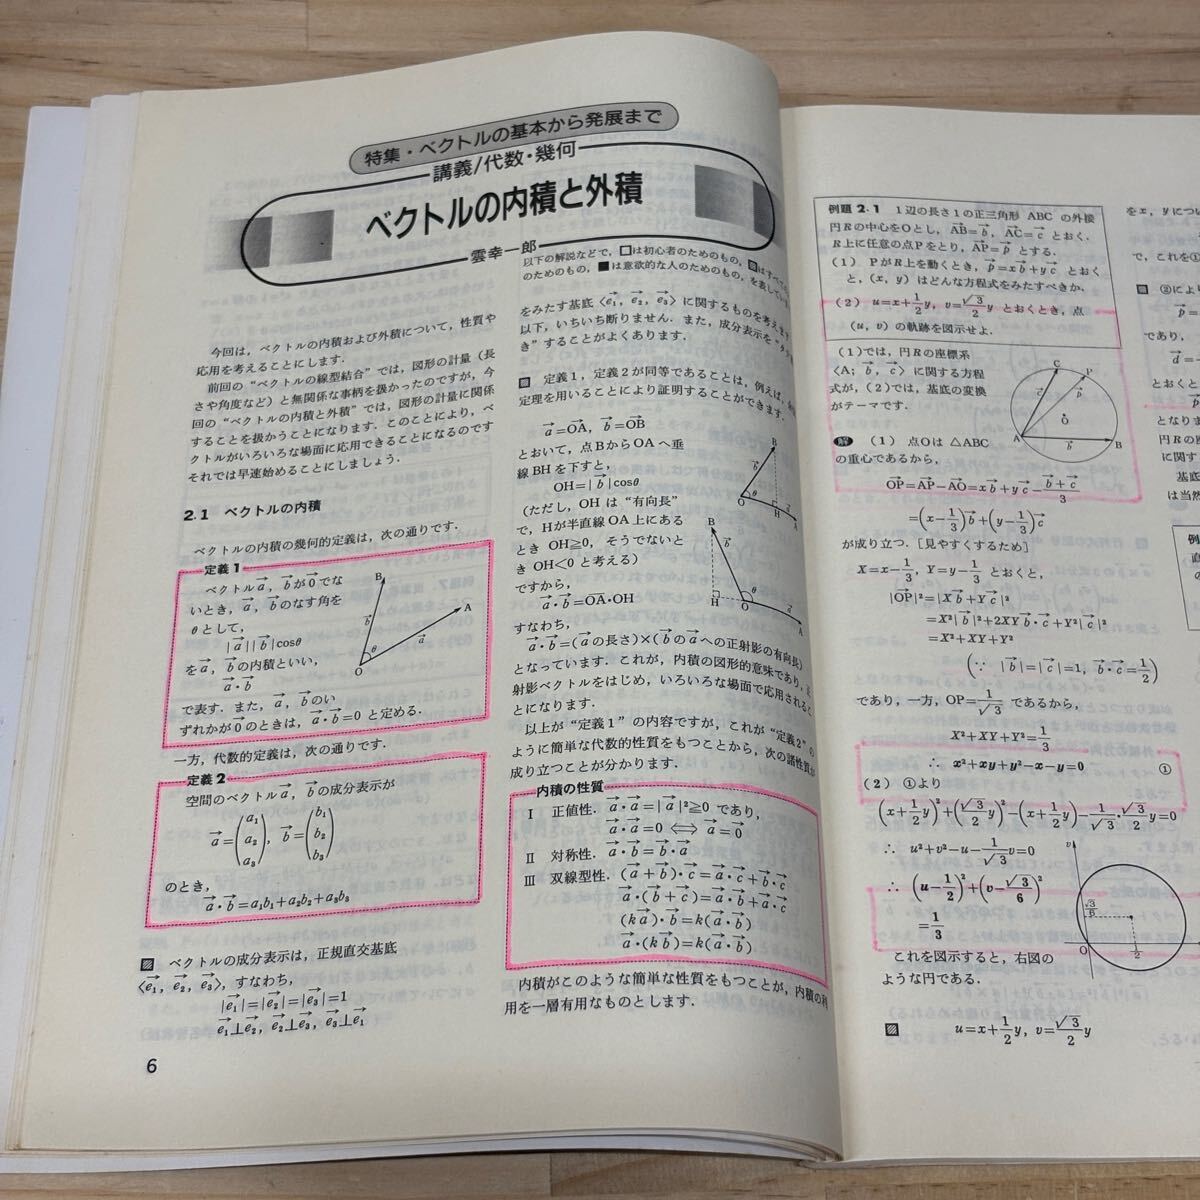 特集・ベクトルの基本から発展まで
講義/代数・幾何
ベクトルの内積と外積
雲幸一郎
以下の解説などで，□は初心者のためのもの，▨はすべての人
のためのもの，■は意欲的な人のためのもの，を表している
今回は，ベクトルの内積および外積について，性質や
応用を考えることにします．
前回の“ベクトルの線型結合”では，図形の計量（長
さや角度など）と無関係な事柄を扱かったのですが，今
回の“ベクトルの内積と外積”では，図形の計量に関係
することを扱かうことになります．このことにより，ベ
クトルがいろいろな場面に応用できることになるのです
それでは早速始めることにしましょう．
2.1 ベクトルの内積
ベクトルの内積の幾何的定義は，次の通りです．
定義1
ベクトルa→，b→が0→でな
いとき，a→，b→のなす角を
θとして，
|a→||b→|cosθ
をa→，b→の内積といい，
a→・b→
で表す．また，a→，b→のい
ずれかが0→のときは，a→・b→=0 と定める．
B
A
O
θ
b→
a→
一方，代数的定義は，次の通りです．
定義2
空間のベクトルa→，b→の成分表示が
a→=(a₁ a₂ a₃)，b→=(b₁ b₂ b₃)
のとき，
a→・b→=a₁b₁+a₂b₂+a₃b₃
▨ ベクトルの成分表示は，正規直交基底
〈e₁→，e₂→，e₃→〉，すなわち，
|e₁→|=|e₂→|=|e₃→|=1
e₁→⊥e₂→，e₂→⊥e₃→，e₃→⊥e₁→
6
をみたす基底〈e₁→，e₂→，e₃→〉に関するものを考えます
以下，いちいち断りません．また，成分表示を“タテ
き”することがよくあります．
▨ 定義1，定義2が同等であることは，例えば，余弦
定理を用いることにより証明することができます．
a→=OA→，b→=OB→
とおいて，点BからOAへ垂
線BHを下すと，
OH=|b→|cosθ
（ただし，OHは“有向長”
で，Hが半直線OA上にある
とき OH≧0，そうでないと
き OH<0 と考える）
ですから，
a→・b→=OA・OH
すなわち，
a→・b→=(a→の長さ)×(b→のa→への正射影の有向長)
となっています．これが，内積の図形的意味であり，正
射影ベクトルをはじめ，いろいろな場面で応用されるこ
とになります．
以上が“定義1”の内容ですが，これが“定義2”の
ように簡単な代数的性質をもつことから，次の諸性質が
成り立つことが分かります．
内積の性質
Ⅰ 正値性．a→・a→=|a→|²≧0 であり，
a→・a→=0 ⟺ a→=0→
Ⅱ 対称性．a→・b→=b→・a→
Ⅲ 双線型性．(a→+b→)・c→=a→・c→+b→・c→
a→・(b→+c→)=a→・b→+a→・c→
(ka→)・b→=k(a→・b→)
a→・(kb→)=k(a→・b→)
内積がこのような簡単な性質をもつことが，内積の利
用を一層有用なものとします．
例題 2・1 1辺の長さ1の正三角形 ABC の外接
円Rの中心をOとし，AB→=b→，AC→=c→ とおく．
R上に任意の点Pをとり，AP→=p→ とする．
(1) PがR上を動くとき，p→=xb→+yc→ とおく
と，(x, y) はどんな方程式をみたすべきか．
(2) u=x+1/2 y，v=√3/2 y とおくとき，点
(u, v) の軌跡を図示せよ．
(1)では，円Rの座標系
〈A; b→，c→〉に関する方程
式が，(2)では，基底の変換
がテーマです．
解 (1) 点Oは △ABC
の重心であるから，
OP→=AP→−AO→=xb→+yc→−(b→+c→)/3
=(x−1/3)b→+(y−1/3)c→
が成り立つ．[見やすくするため]
X=x−1/3，Y=y−1/3 とおくと，
|OP→|²=|Xb→+Yc→|²
=X²|b→|²+2XYb→・c→+Y²|c→|²
=X²+XY+Y²
(∵ |b→|=|c→|=1，b→・c→=1/2)
であり，一方，OP=1/√3 であるから，
X²+XY+Y²=1/3
∴ x²+xy+y²−x−y=0 ①
(2) ①より
(x+1/2 y)²+(√3/2 y)²−(x+1/2 y)−1/√3・√3/2 y=0
∴ u²+v²−u−1/√3 v=0
∴ (u−1/2)²+(v−√3/6)²
=1/3
これを図示すると，右図の
ような円である．
▨ u=x+1/2 y，v=√3/2 y
をx，yについ
で，これを①
▨ ③により
であり，
d→=
とおくと
となりま
円Rの
に関す
基底
は当然
例
直
の